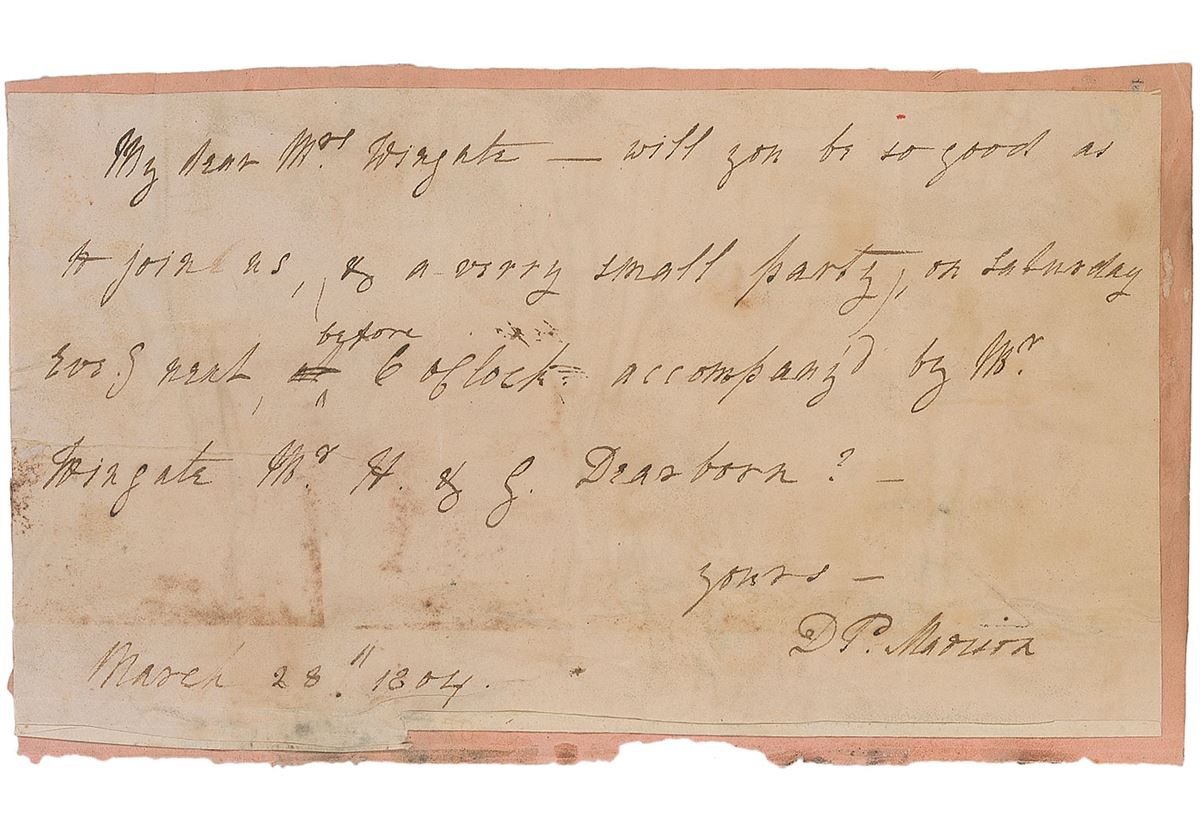 My dear Mrs. Wingate — will you be so good as
to join us, (& a verry small party), on saturday
Eveg next, before 6 oClock accompany'd by Mr.
Wingate Mr. H. & G. Dearborn? —
yours —
D P. Madison
March 28." 1804.